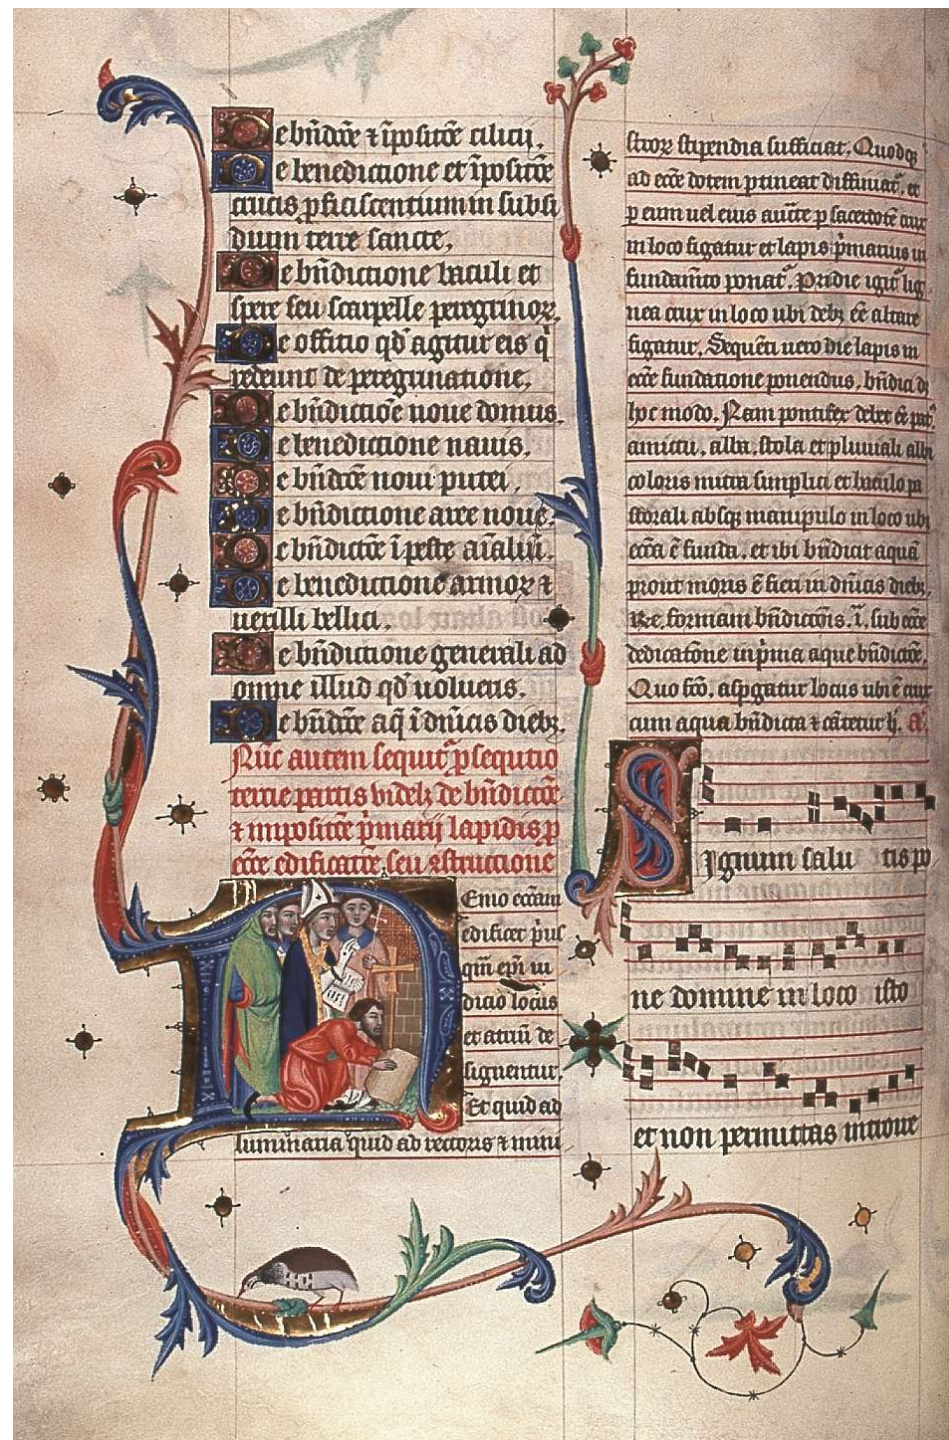 De bn̄dcōe ⁊ īpositōe cilicij.
De benedictione et īpositōe
crucis proficiscentium in subsi
dium terre sancte.
De bn̄dictione baculi et
spere seu scarpelle peregrinoꝝ.
De offitio qd̄ agitur eis q̄
redeunt de peregrinatione.
De bn̄dictiōe noue domus.
De benedictione nauis.
De bn̄dcōe noui putei.
De bn̄dictione aree noue.
De bn̄dictōe ī peste aīaliū.
De benedictione armoꝝ ⁊
uexilli bellici.
De bn̄dictione generali ad
omne illud qd̄ uolueris.
De bn̄dcōe aq̄ ī dn̄icis diebꝫ.
Nūc autem sequit᷑ ꝓsequtio
tercie partis videlꝫ de bn̄dictōe
⁊ impositōe p̄marij lapidis ꝓ
ecc̄e edificatōe seu ⁊structione
Nemo ecc̄iam
edificet p̄us
qm̄ ep̄i iu
dicio locus
et atriū de
signentur.
Et quid ad
luminaria quid ad rectoris ⁊ mini
stroꝝ stipendia sufficiat. Quodqꝫ
ad ecc̄e dotem ꝑtineat diffiniat᷑. et
ꝑ eum uel eius auct̄e ꝑ sacerdotē crux
in loco figatur et lapis p̄marius in
fundam̄to ponat᷑. Pridie igit᷑ lig
nea crux in loco ubi debꝫ eē altare
figatur. Sequēti uero die lapis in
ecc̄e fundatione ponendus, bn̄dicit᷑
hoc modo. Nam pontifex debet eē pat᷑
amictu, alba, stola et pluuiali albi
coloris mitra simplici et baculo pa
storali absqꝫ manipulo in loco ubi
ecc̄a ē funda. et ibi bn̄dicat aquā
prout moris ē fieri in dn̄icis diebꝫ,
iux̄. formam bn̄dictōis .ī. sub ecc̄e
dedicatōne in p̄ma aque bn̄dictōe.
Quo fc̄o, aspgatur locus ubi ē crux
cum aqua bn̄dicta ⁊ cātetur h̄. A᷑.
Signum salu tis po
ne domine in loco isto
et non permittas introire